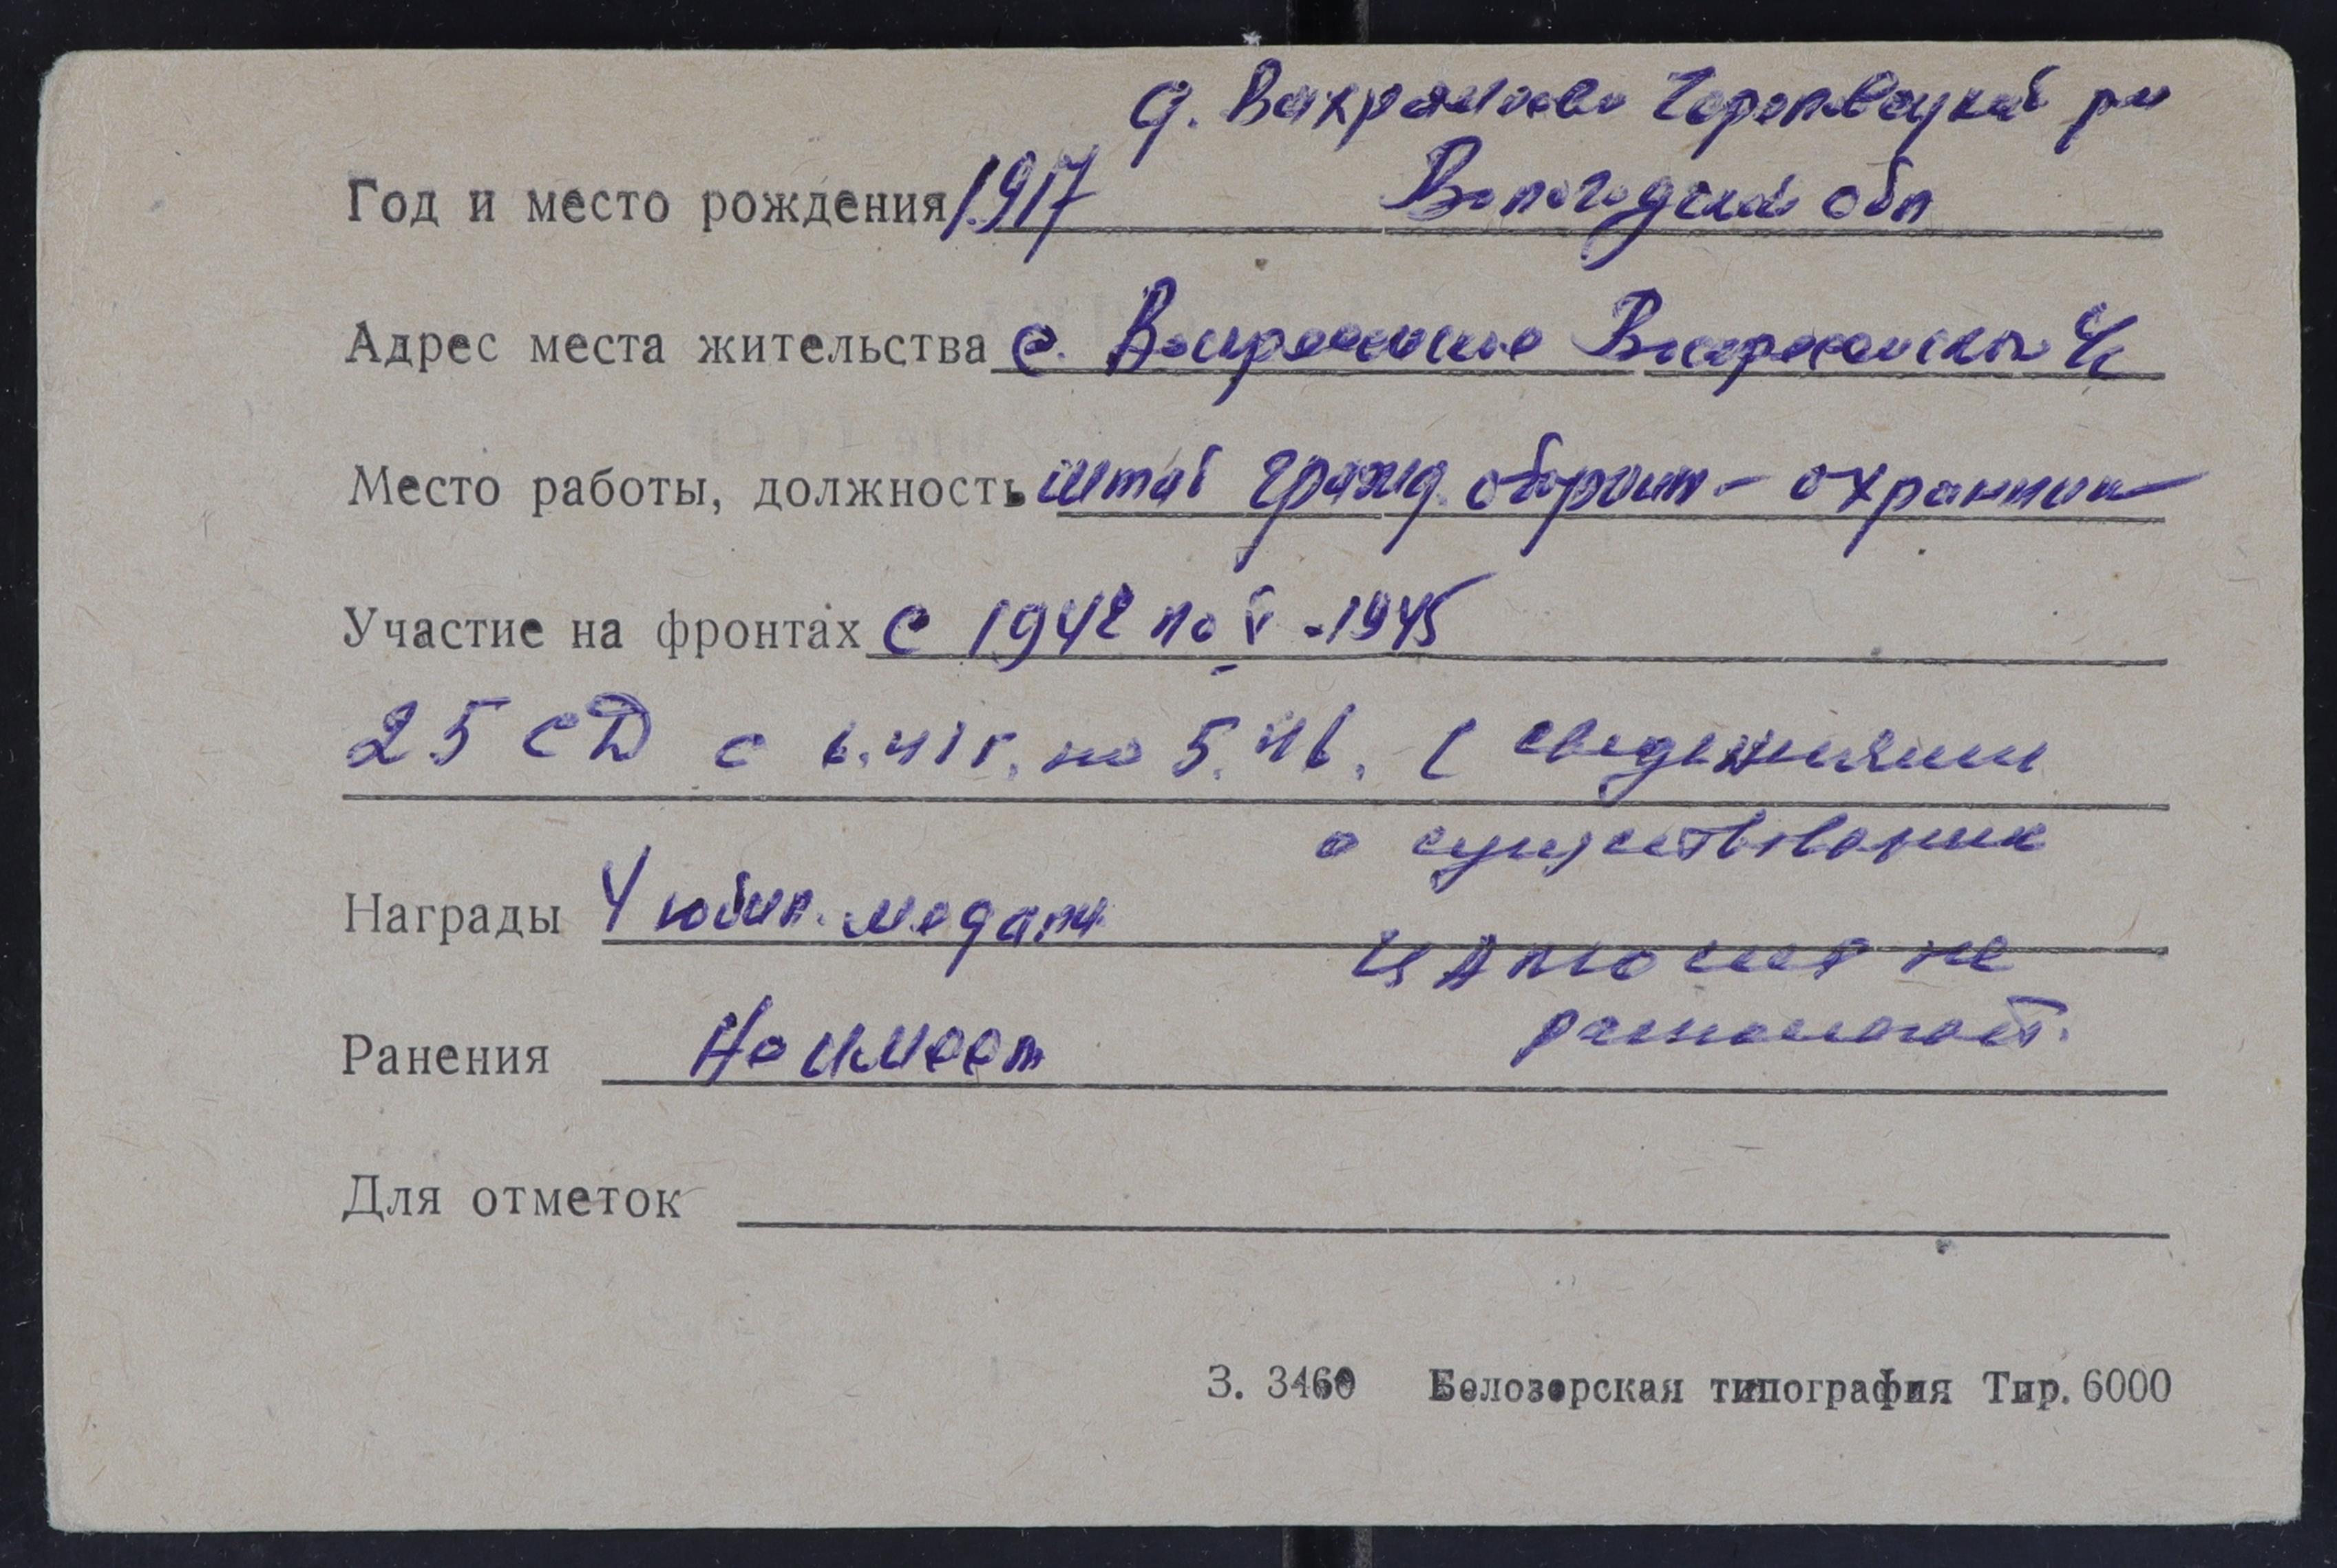 д. Вахрамеево Череповецкий р-н
Год и место рождения 1917 Вологодской обл
Адрес места жительства с. Воскресенское Воскресенского с/с
Место работы, должность штаб гражд. оборонт - охранник
Участие на фронтах с 1942 по V - 1945
25 СД с 6.41г. по 5.46. ( сведениями
о существовании
Награды 4 юбил. медали
не
располагает.
Ранения Не имеет
Для отметок
З. 3460 Белозерская типография Тир. 6000